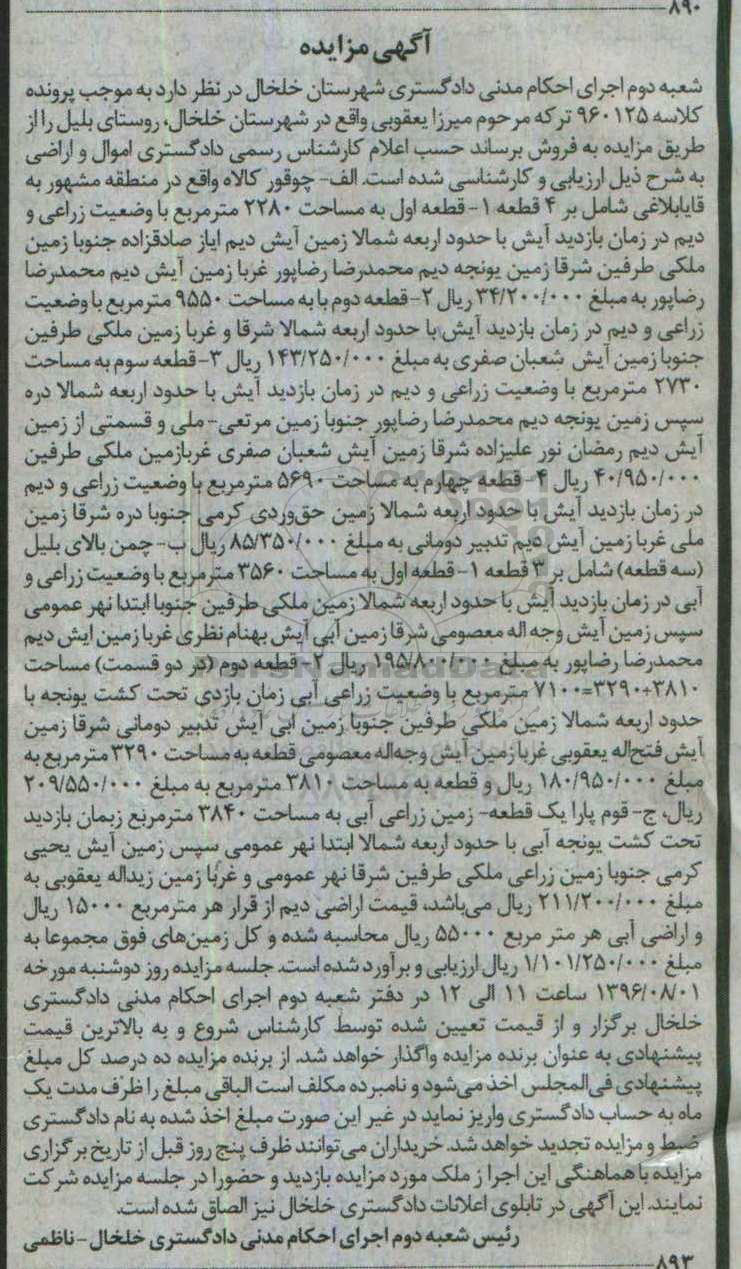 ۸۹۰
آگهی مزایده
شعبه دوم اجرای احکام مدنی دادگستری شهرستان خلخال در نظر دارد به موجب پرونده
کلاسه ۹۶۰۱۲۵ ترکه مرحوم میرزا یعقوبی واقع در شهرستان خلخال، روستای بلیل را از
طریق مزایده به فروش برساند حسب اعلام کارشناس رسمی دادگستری اموال و اراضی
به شرح ذیل ارزیابی و کارشناسی شده است. الف- چوقور کالاه واقع در منطقه مشهور به
قایابلاغی شامل بر ۴ قطعه ۱- قطعه اول به مساحت ۲۲۸۰ مترمربع با وضعیت زراعی و
دیم در زمان بازدید آیش با حدود اربعه شمالا زمین آیش دیم ایاز صادقزاده جنوبا زمین
ملکی طرفین شرقا زمین یونجه دیم محمدرضا رضاپور غربا زمین آیش دیم محمدرضا
رضاپور به مبلغ ۳۴/۲۰۰/۰۰۰ ریال ۲- قطعه دوم با به مساحت ۹۵۵۰ مترمربع با وضعیت
زراعی و دیم در زمان بازدید آیش با حدود اربعه شمالا شرقا و غربا زمین ملکی طرفین
جنوبا زمین آیش شعبان صفری به مبلغ ۱۴۳/۲۵۰/۰۰۰ ریال ۳- قطعه سوم به مساحت
۲۷۳۰ مترمربع با وضعیت زراعی و دیم در زمان بازدید آیش با حدود اربعه شمالا دره
سپس زمین یونجه دیم محمدرضا رضاپور جنوبا زمین مرتعی- ملی و قسمتی از زمین
آیش دیم رمضان نور علیزاده شرقا زمین آیش شعبان صفری غربازمین ملکی طرفین
۴۰/۹۵۰/۰۰۰ ریال ۴- قطعه چهارم به مساحت ۵۶۹۰ مترمربع با وضعیت زراعی و دیم
در زمان بازدید آیش با حدود اربعه شمالا زمین حق‌وردی کرمی جنوبا دره شرقا زمین
ملی غربا زمین آیش دیم تدبیر دومانی به مبلغ ۸۵/۳۵۰/۰۰۰ ریال ب- چمن بالای بلیل
(سه قطعه) شامل بر ۳ قطعه ۱- قطعه اول به مساحت ۳۵۶۰ مترمربع با وضعیت زراعی و
آبی در زمان بازدید آیش با حدود اربعه شمالا زمین ملکی طرفین جنوبا ابتدا نهر عمومی
سپس زمین آیش وجه اله معصومی شرقا زمین آبی آیش بهنام نظری غربا زمین ایش دیم
محمدرضا رضاپور به مبلغ ۱۹۵/۸۰۰/۰۰۰ ریال ۲- قطعه دوم (در دو قسمت) مساحت
۳۸۱۰+۳۲۹۰=۷۱۰۰ مترمربع با وضعیت زراعی آبی زمان بازدی تحت کشت یونجه با
حدود اربعه شمالا زمین ملکی طرفین جنوبا زمین ابی آیش تدبیر دومانی شرقا زمین
آیش فتح‌اله یعقوبی غربا زمین آیش وجه‌اله معصومی قطعه به مساحت ۳۲۹۰ مترمربع به
مبلغ ۱۸۰/۹۵۰/۰۰۰ ریال و قطعه به مساحت ۳۸۱۰ مترمربع به مبلغ ۲۰۹/۵۵۰/۰۰۰
ریال، ج- قوم پارا یک قطعه- زمین زراعی آبی به مساحت ۳۸۴۰ مترمربع زبمان بازدید
تحت کشت یونجه آبی با حدود اربعه شمالا ابتدا نهر عمومی سپس زمین آیش یحیی
کرمی جنوبا زمین زراعی ملکی طرفین شرقا نهر عمومی و غربا زمین زیداله یعقوبی به
مبلغ ۲۱۱/۲۰۰/۰۰۰ ریال می‌باشد، قیمت اراضی دیم از قرار هر مترمربع ۱۵۰۰۰ ریال
و اراضی آبی هر متر مربع ۵۵۰۰۰ ریال محاسبه شده و کل زمین‌های فوق مجموعا به
مبلغ ۱/۱۰۱/۲۵۰/۰۰۰ ریال ارزیابی و برآورد شده است. جلسه مزایده روز دوشنبه مورخه
۱۳۹۶/۰۸/۰۱ ساعت ۱۱ الی ۱۲ در دفتر شعبه دوم اجرای احکام مدنی دادگستری
خلخال برگزار و از قیمت تعیین شده توسط کارشناس شروع و به بالاترین قیمت
پیشنهادی به عنوان برنده مزایده واگذار خواهد شد. از برنده مزایده ده درصد کل مبلغ
پیشنهادی فی‌المجلس اخذ می‌شود و نامبرده مکلف است الباقی مبلغ را ظرف مدت یک
ماه به حساب دادگستری واریز نماید در غیر این صورت مبلغ اخذ شده به نام دادگستری
ضبط و مزایده تجدید خواهد شد. خریداران می‌توانند ظرف پنج روز قبل از تاریخ برگزاری
مزایده با هماهنگی این اجرا ز ملک مورد مزایده بازدید و حضورا در جلسه مزایده شرکت
نمایند. این آگهی در تابلوی اعلانات دادگستری خلخال نیز الصاق شده است.
رئیس شعبه دوم اجرای احکام مدنی دادگستری خلخال - ناظمی
۸۹۳